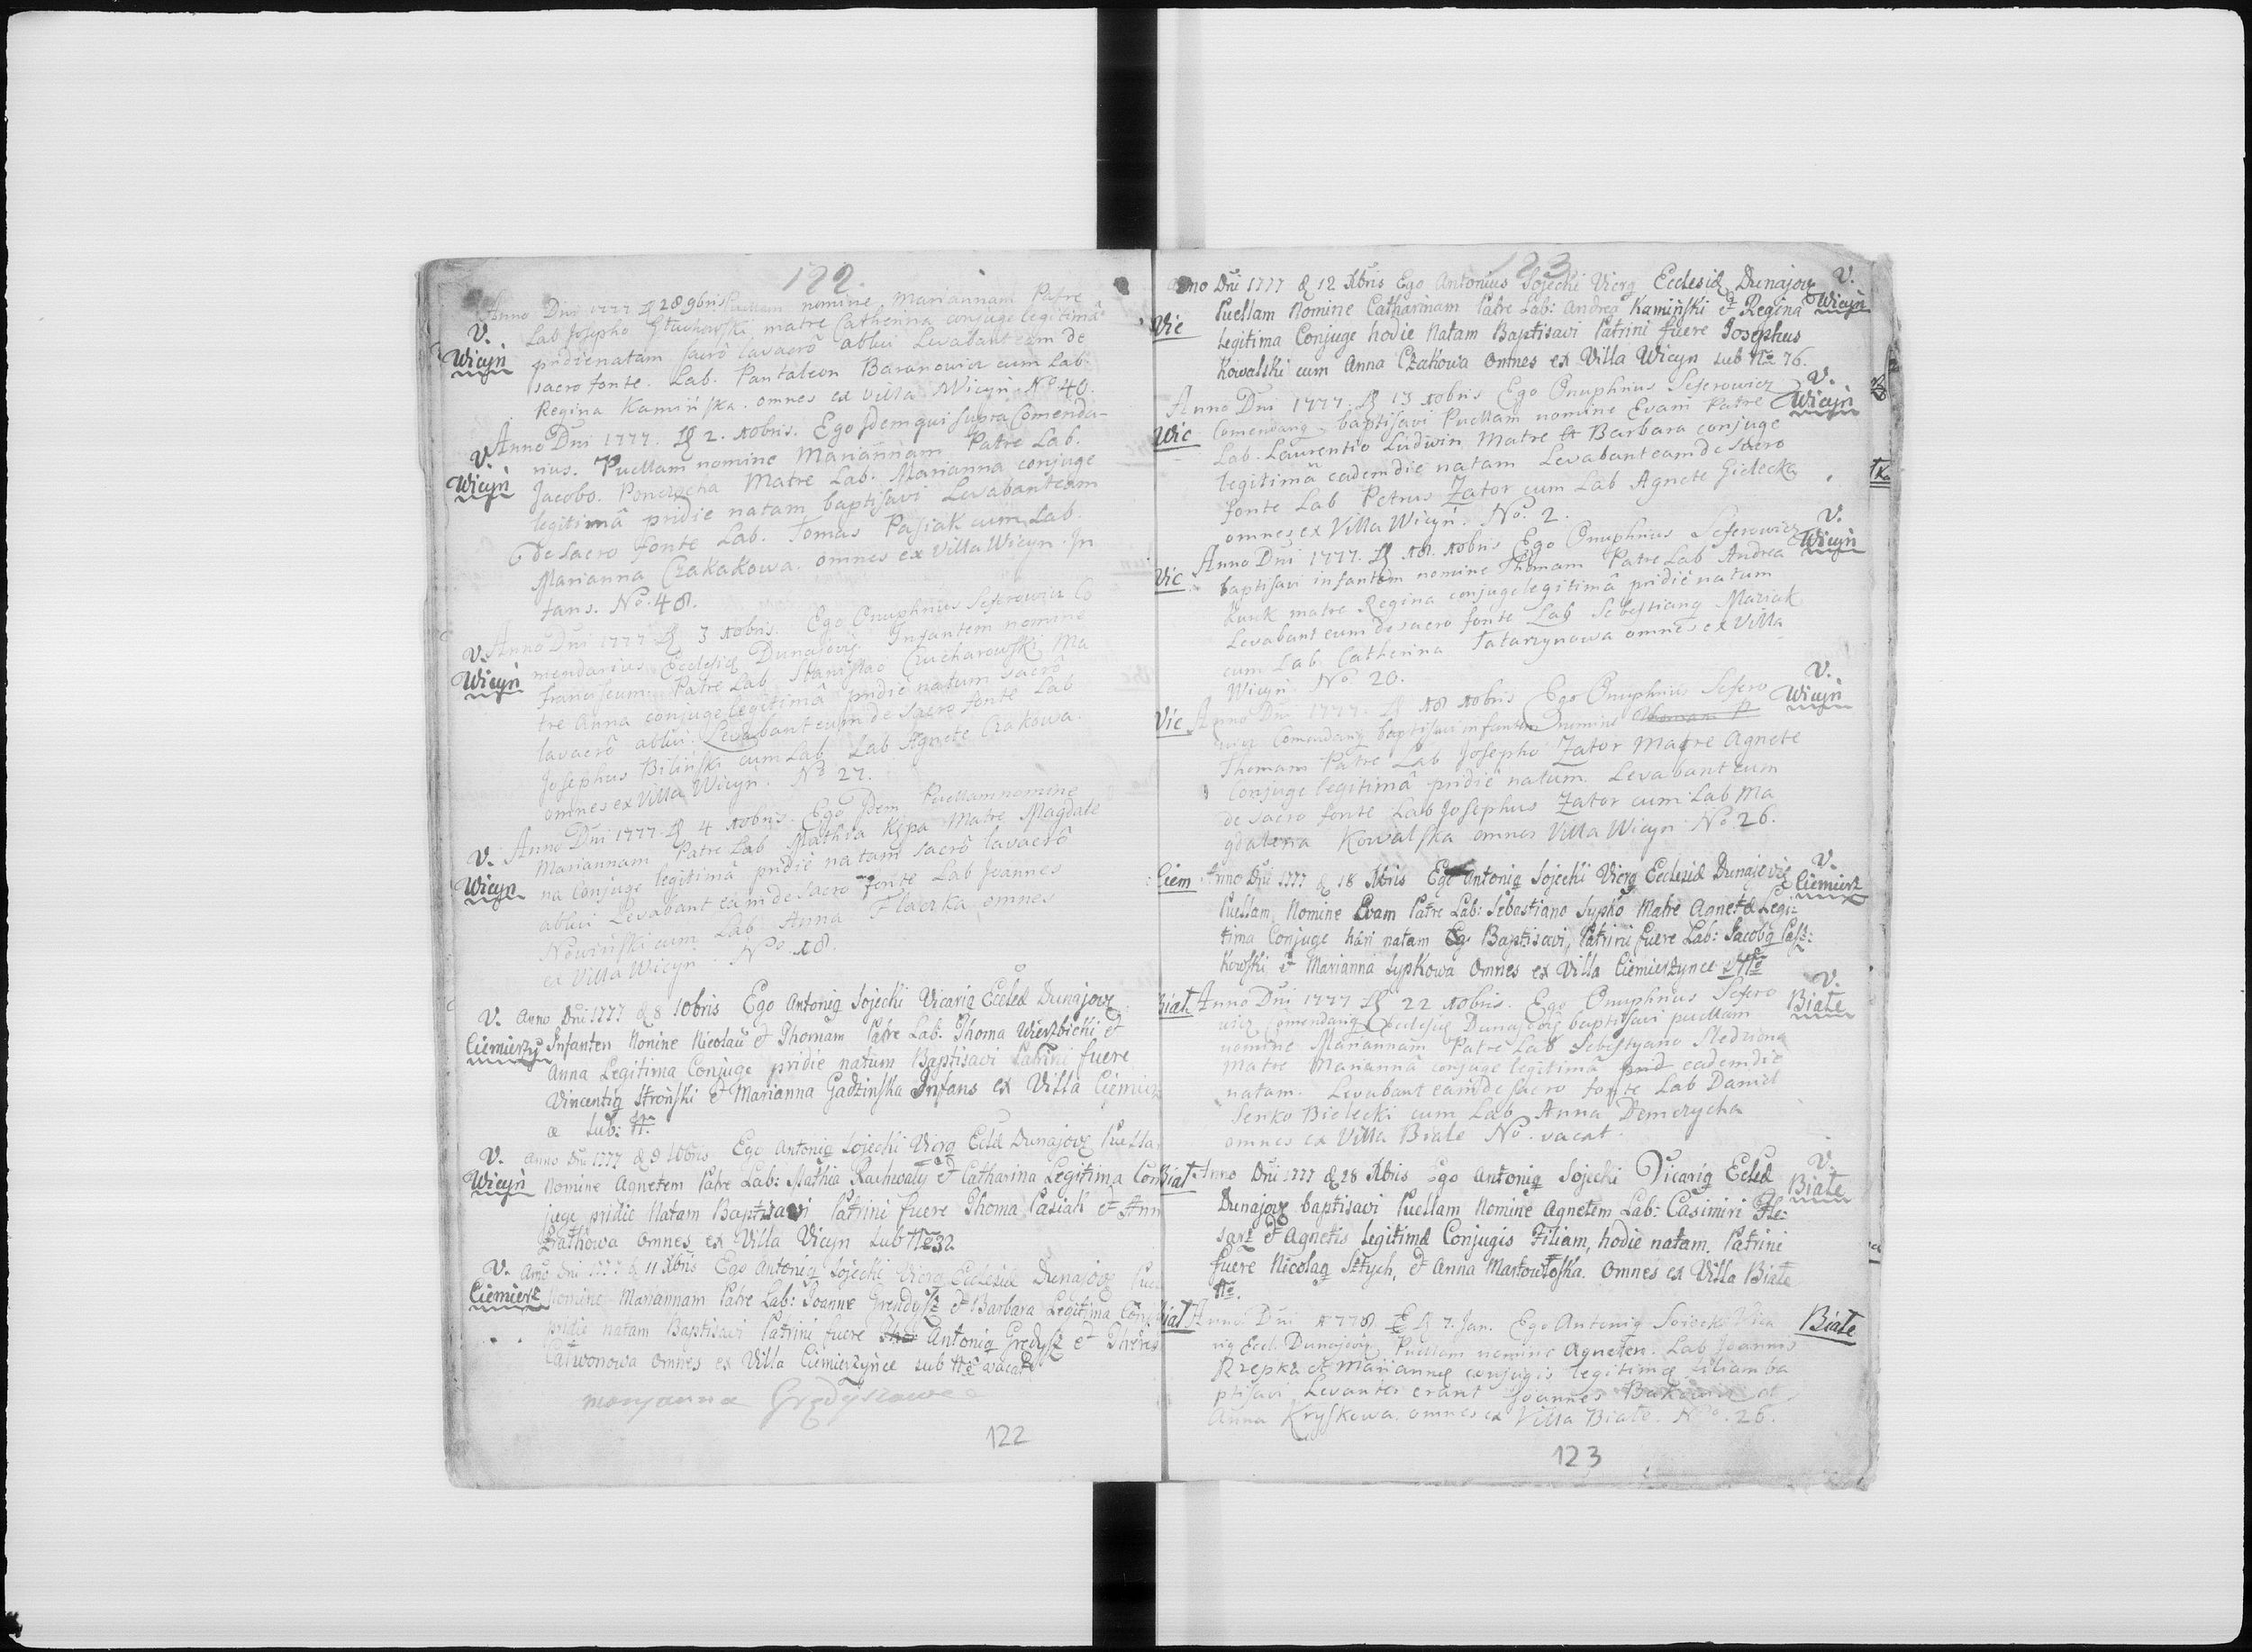 122.
Anno Dni 1777 d 28 9bris Puellam nomine Mariannam Patre
V.
Lab Josepho Stuchowski matre Catherina conjuge legitimâ
Wicyń
pridie natam sacrô lavacrô ablui Levabant eam de
sacro fonte. Lab. Pantaleon Baranowicz cum Lab.
Regina Kamińska. omnes ex villa Wicyń. No 40.
Anno Dni 1777. d 2. Xbris. Ego Idem qui supra Comenda-
V.
rius. Puellam nomine Mariannam Patre Lab.
Wicyń
Jacobo. Poneracha Matre Lab. Marianna conjuge
legitimâ pridie natam baptisavi Levabant eam
de sacro fonte Lab. Tomas Pasiak cum Lab.
Marianna Czakakowa. omnes ex Villa Wicyn. In
fans. No. 48.
Anno Dni 1777 d 3 Xobris. Ego Onuphrius Seferowicz Co
V.
mendarius Ecclesiæ Dunajoviẽ Infantem nomine
Wicyń
Franciscum Patre Lab Stanislao Czucharowski Ma
tre Anna conjuge legitimâ pridie natum sacrô
lavacrô ablui. Levabant eum de sacro fonte Lab
Josephus Biliński cum Lab Lab Agnete Czakowa.
omnes ex Villa Wicyn. No 27.
Anno Dni 1777 d 4 Xobris. Ego Idem Puellam nomine
V.
Mariannam Patre Lab Mathia Kępa Matre Magdale
Wicyn
na Conjuge legitimâ pridie natam sacrô lavacrô
ablui Levabant eam de sacro fonte Lab Joannes
Nowiński cum Lab Anna Flaczka omnes
ex Villa Wicyn. No 18.
V. Anno Dni 1777 d 8 10bris Ego Antoniq Sojecki Vicariq Eccleæ Dunajovẽ
Ciemierzy Infanten Nomine Nicolaũ et Thomam Patre Lab: Thoma Wierzbicki et
Anna Legitima Conjuge pridie natum Baptisavi Patrini fuere
Vincentiq Stroński et Marianna Gadzińska Infans ex Villa Ciemierz
æ sub: No
V. Anno Dni 1777 d 9 10bris Ego Antoniq Sojecki Vicrq Eclæ Dunajovẽ Puella
Wicyń Nomine Agnetem Patre Lab: Mathia Rachwały et Catharina Legitima Con
juge pridie Natam Baptisavi Patrini fuere Thoma Pasiak et Ann
Bratkowa Omnes ex Villa Vicyn sub No 32
V. Anno Dni 1777 d 11 Xbris Ego Antoniq Sojecki Vicrq Ecclesiæ Dunajovẽ Puel
Ciemierz Nomine Mariannam Patre Lab: Joanne Grendysz et Barbara Legitima Conju
pridie natam Baptisavi Patrini fuere Antoniq Grędysz et Theres
Omnes ex Villa Ciemierzyńce sub No vacat
maryanna Grędyszowe
122
123
Anno Dni 1777 d 12 Xbris Ego Antonius Sojecki Vicrq Ecclesiæ Dunajovẽ V.
Puellam Nomine Catharinam Patre Lab: Andrea Kamiński et Regina Wicyń
Vic
Legitima Conjuge hodie Natam Baptisavi Patrini fuere Josephus
Kowalski cum Anna Czakowa Omnes ex Villa Wicyn sub No 76.
Anno Dni 1777. d 13 Xobris Ego Onuphrius Seferowicz V.
Comendarq baptisavi Puellam nomine Evam Patre Wicyń
Wic
Lab. Laurentio Ludwin Matre Barbara conjuge
legitimâ eadem die natam Levabant eam de sacro
fonte Lab Petrus Zator cum Lab Agnete Gielecka
omnes ex Villa Wicyń. No. 2.
V.
Anno Dni 1777. d 18. Xobris Ego Onuphrius Seferowicz Wicyń
Vic
baptisavi infantem nomine Thomam Patre Lab Andrea
Kuik matre Regina conjuge legitimâ pridie natum
Levabant eum de sacro fonte Lab Sebestianq Maziak
cum Lab Catherina Tatarzynowa omnes ex Villa
Wicyń. No 20.
V.
Vic Anno Dni 1777. d 18 Xobris Ego Onuphrius Sefero Wicyń
wicz Comendarq baptisavi infantem nomine
Thomam Patre Lab Josepho Zator matre Agnete
Conjuge legitimâ pridie natum. Levabant eum
de sacro fonte Lab Josephus Zator cum Lab Ma
gdalena Kowalska omnes Villa Wicyn No. 26.
V.
Ciem Anno Dni 1777 d 18 Xbris Ego Antoniq Sojecki Vicrq Ecclesiæ Dunajoviẽ Ciemierz
Puellam Nomine Evam Patre Lab: Sebastiano Sypko Matre Agnete Legi:
tima Conjuge heri natam Baptisavi, Patrini fuere Lab: Jacobq Past:
kowski et Marianna Sypkowa Omnes ex Villa Ciemierzynce sub No
V.
Biał Anno Dni 1777 d 22 Xobris. Ego Onuphrius Sefero Białe
wicz Comendarq Ecclesiæ Dunajoviẽ baptisavi puellam
nomine Mariannam Patre Lab Sebestyano Sledziona
Matre Mariannâ conjuge legitimâ prid eadem die
natam. Levabant eam de sacro fonte Lab Daniel
Senko Bielecki cum Lab Anna Demczycha
omnes ex Villa Biale No. vacat.
V.
Biał Anno Dni 1777 d 28 Xbris Ego Antoniq Sojecki Vicariq Eclæ Białe
Dunajovẽ baptisavi Puellam Nomine Agnetem Lab: Casimiri Sle:
sarz et Agnetis Legitimæ Conjugis Filiam, hodie natam. Patrini
fuere Nicolaq Sztych, et Anna Martowloska. Omnes ex Villa Białe
No.
Biał Anno Dni 1778 d 7. Jan. Ego Antoniq Soiecki Vica Białe
riq Eccl. Dunajoviẽ Puellam nomine Agneten. Lab Joannis
Rzepka et Mariannę conjugis legitimę filiam ba
ptisavi Levantes erant Joannes et
Anna Kryskowa. omnes ex Villa Białe. No. 26.
123